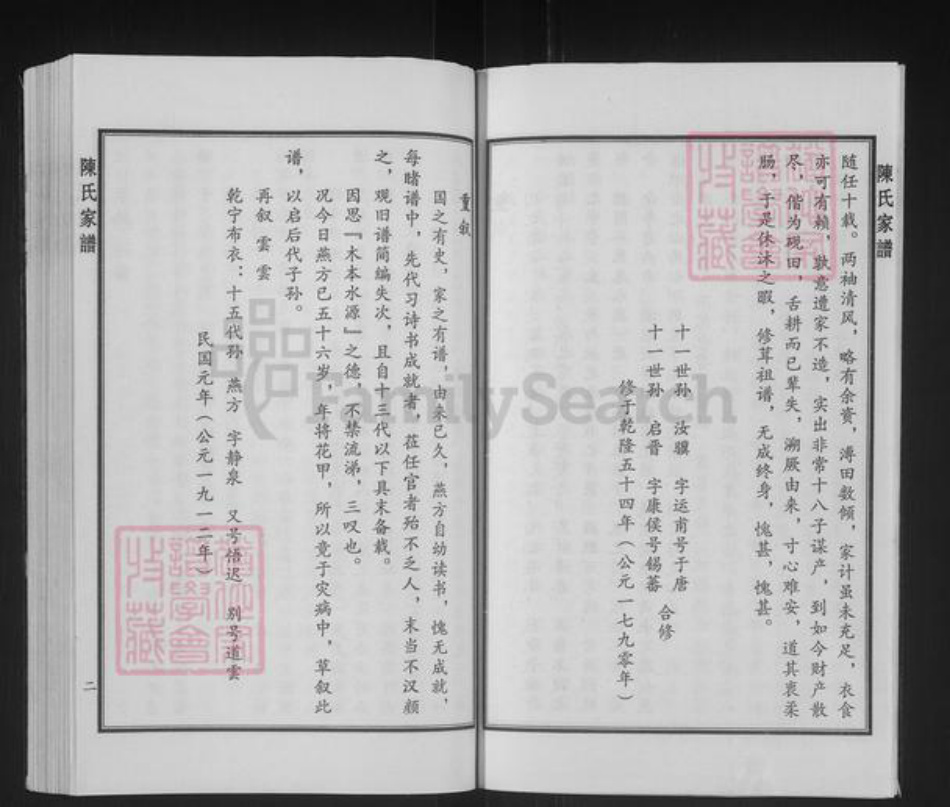 陳氏家譜
随任十载。两袖清风，略有余资，薄田数倾，家计虽未充足，衣食
亦可有赖，孰意遭家不造，实出非常十八子谋产，到如今财产散
尽，偕为砚田，舌耕而已辈失，溯厥由来，寸心难安，道其衷柔
肠，于是休沐之暇，修葺祖谱，无成终身，愧甚，愧甚。
十一世孙 汝骥 字运甫号于唐
十一世孙 启晋 字康侯号锡蕃 合修
修于乾隆五十四年（公元一七九零年）
重叙
国之有史，家之有谱，由来已久，燕方自幼读书，愧无成就，
每睹谱中，先代习诗书成就者，莅任官者殆不乏人，末当不汉颜
之，观旧谱简编失次，且自十三代以下具末备载。
因思『木本水源』之德，不禁流涕，三叹也。
况今日燕方已五十六岁，年将花甲，所以竟于灾病中，草叙此
谱，以启后代子孙。
再叙 雲雲
乾宁布衣：十五代孙 燕方 字静泉 又号悟迟 别号道雲
民国元年（公元一九一二年）
陳氏家譜
二
FamilySearch